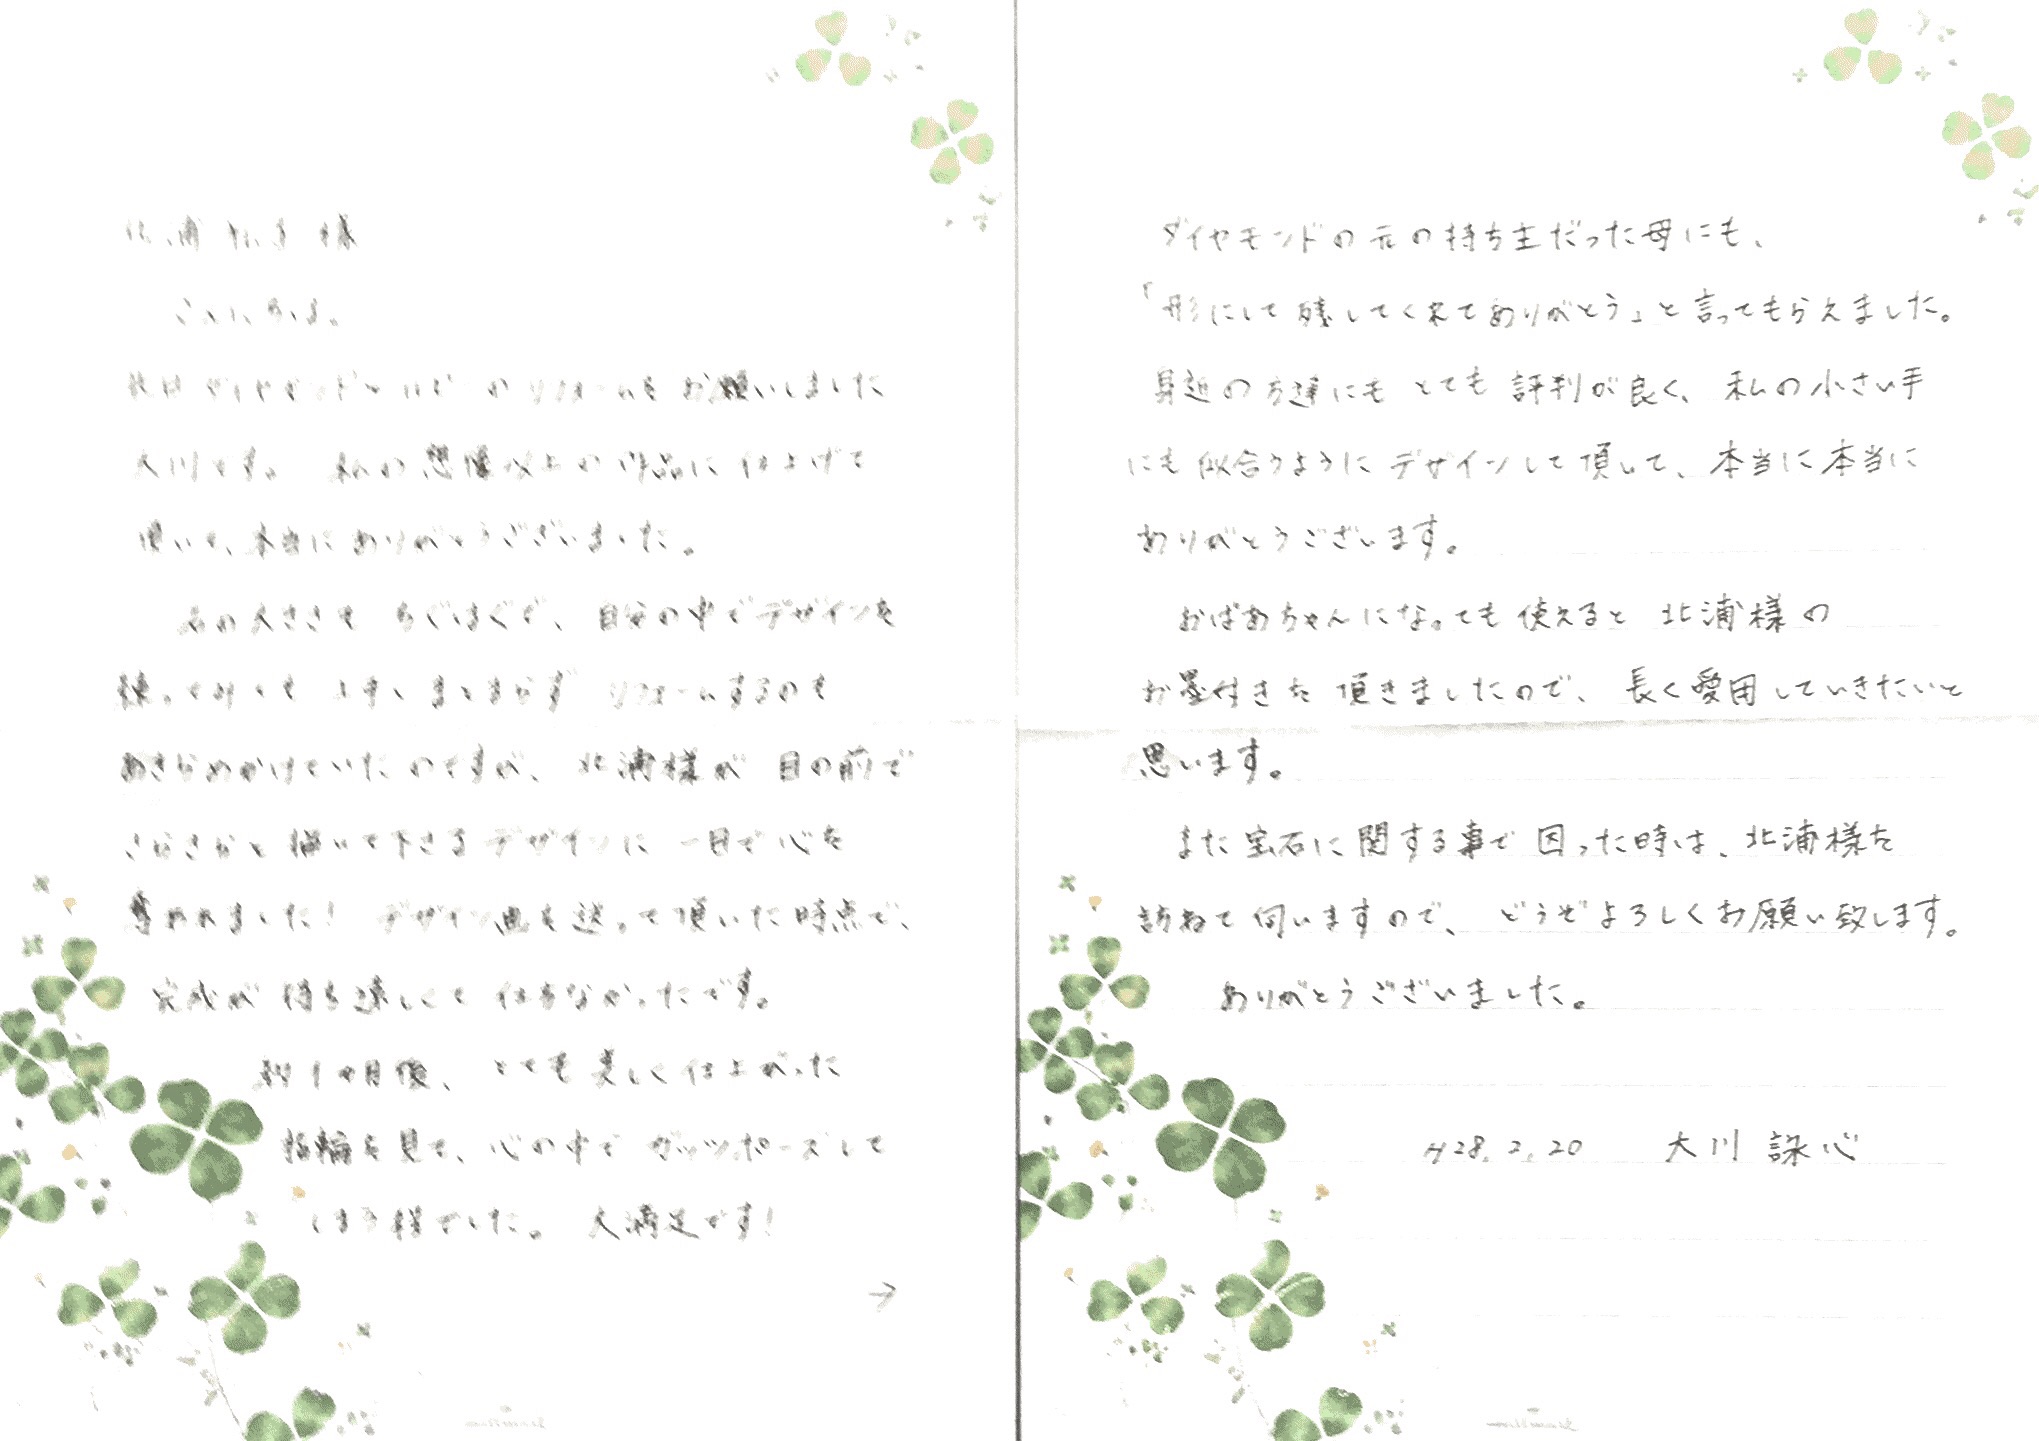 北浦 様
こんにちは。
先日ダイヤモンドとルビーのリフォームをお願いしました
大川です。 私の想像以上の作品に仕上げて
頂いて、本当にありがとうございました。
石の大きさも ちぐはぐで、 自分の中でデザインを
練ってみても 上手くまとまらず リフォームするのも
あきらめかけていたのですが、 北浦様が 目の前で
さらさらと描いて下さるデザインに 一目で心を
奪われました! デザイン画を送って頂いた時点で、
完成が 待ち遠しくて 仕方なかったです。
約1ヶ月後、 とても美しく仕上がった
指輪を見て、心の中で ガッツポーズして
しまう程でした。 大満足です!
→
ダイヤモンドの元の持ち主だった母にも、
「形にして残してくれてありがとう」と言ってもらえました。
身近の方達にも とても 評判が良く、 私の小さい手
にも似合うようにデザインして頂いて、本当に本当に
ありがとうございます。
おばあちゃんになっても使えると 北浦様の
お墨付きを 頂きましたので、 長く愛用していきたいと
思います。
また宝石に関する事で困った時は、北浦様を
訪ねて伺いますので、 どうぞよろしくお願い致します。
ありがとうございました。
H28.2.20 大川 詠心